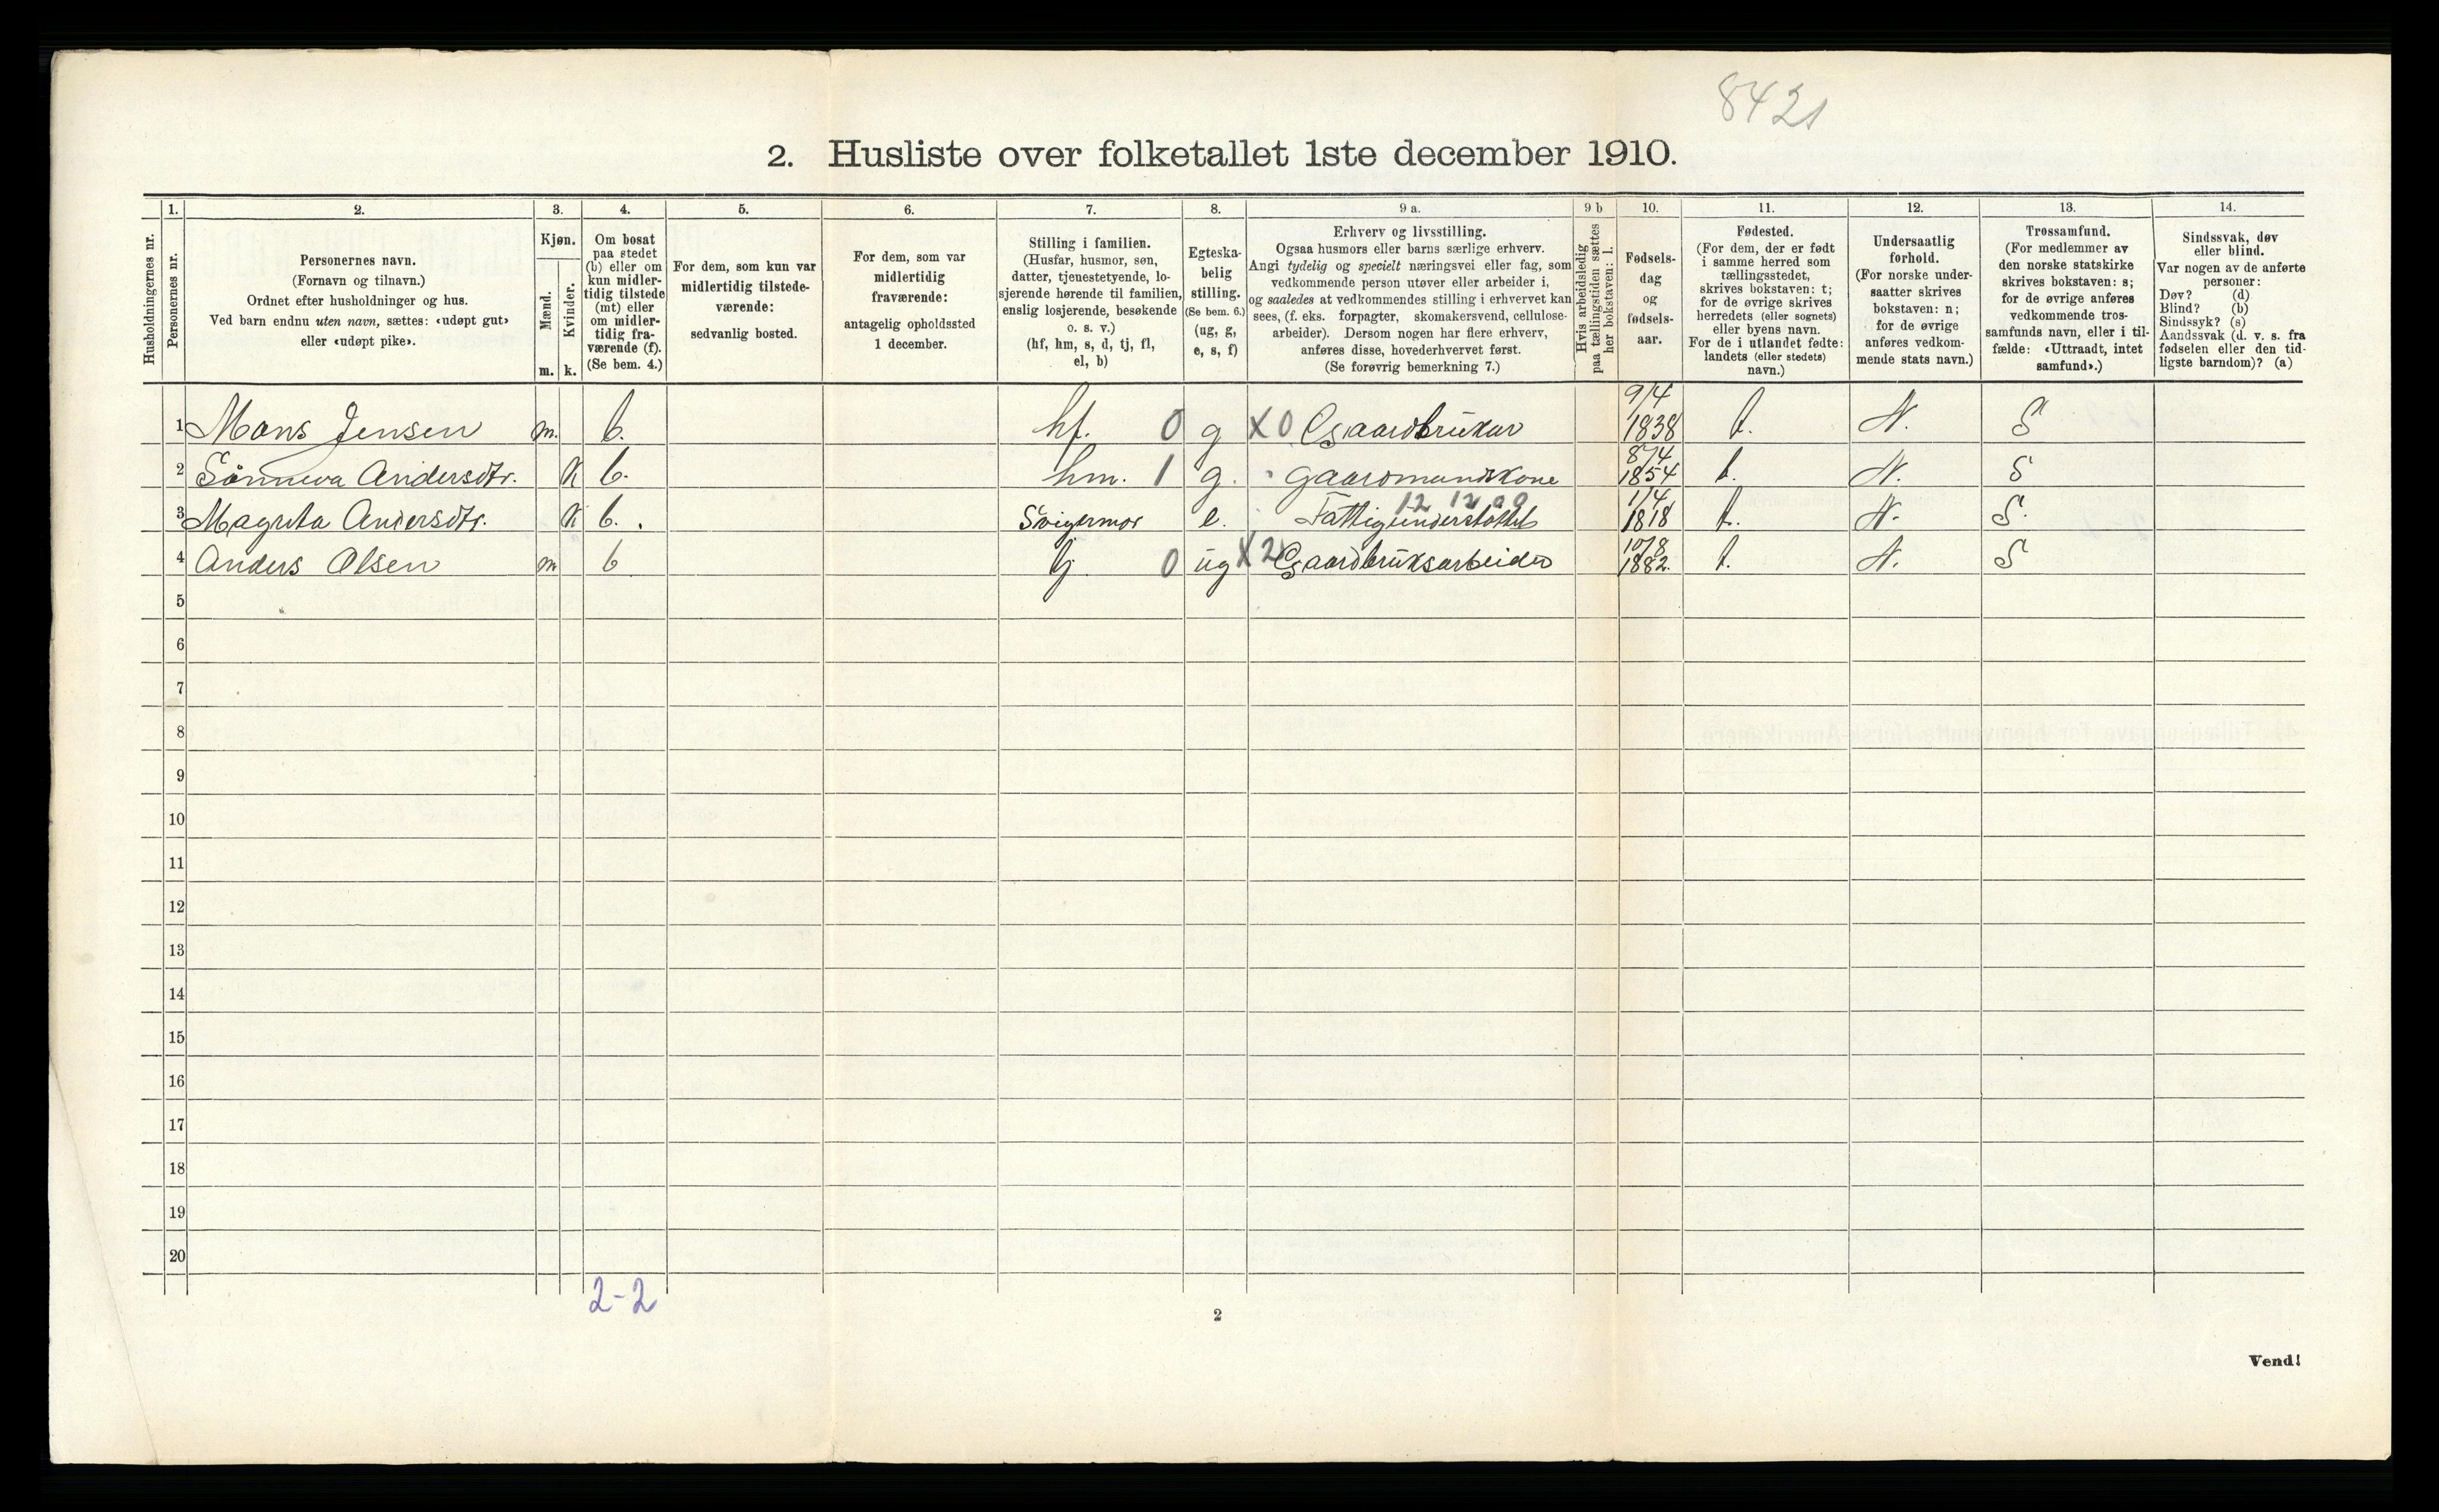 8421
2. Husliste over folketallet 1ste december 1910.
1. 2. 3. 4. 5. 6. 7. 8. 9 a. 9 b 10. 11. 12. 13. 14.
Husholdningernes nr.
Personernes nr.
Personernes navn.
(Fornavn og tilnavn.)
Ordnet efter husholdninger og hus.
Ved barn endnu uten navn, sættes: «udøpt gut»
eller «udøpt pike».
Kjøn.
Mænd.
Kvinder.
m. k.
Om bosat
paa stedet
(b) eller om
kun midler-
tidig tilstede
(mt) eller
om midler-
tidig fra-
værende (f).
(Se bem. 4.)
For dem, som kun var
midlertidig tilstede-
værende:
sedvanlig bosted.
For dem, som var
midlertidig
fraværende:
antagelig opholdssted
1 december.
Stilling i familien.
(Husfar, husmor, søn,
datter, tjenestetyende, lo-
sjerende hørende til familien,
enslig losjerende, besøkende
o. s. v.)
(hf, hm, s, d, tj, fl,
el, b)
Egteska-
belig
stilling.
(Se bem. 6.)
(ug, g,
e, s, f)
Erhverv og livsstilling.
Ogsaa husmors eller barns særlige erhverv.
Angi tydelig og specielt næringsvei eller fag, som
vedkommende person utøver eller arbeider i,
og saaledes at vedkommendes stilling i erhvervet kan
sees, (f. eks. forpagter, skomakersvend, cellulose-
arbeider). Dersom nogen har flere erhverv,
anføres disse, hovederhvervet først.
(Se forøvrig bemerkning 7.)
Hvis arbeidsledig
paa tællingstiden sættes
her bokstaven: l.
Fødsels-
dag
og
fødsels-
aar.
Fødested.
(For dem, der er født
i samme herred som
tællingsstedet,
skrives bokstaven: t;
for de øvrige skrives
herredets (eller sognets)
eller byens navn.
For de i utlandet fødte:
landets (eller stedets)
navn.)
Undersaatlig
forhold.
(For norske under-
saatter skrives
bokstaven: n;
for de øvrige
anføres vedkom-
mende stats navn.)
Trossamfund.
(For medlemmer av
den norske statskirke
skrives bokstaven: s;
for de øvrige anføres
vedkommende tros-
samfunds navn, eller i til-
fælde: «Uttraadt, intet
samfund».)
Sindssvak, døv
eller blind.
Var nogen av de anførte
personer:
Døv? (d)
Blind? (b)
Sindssyk? (s)
Aandssvak (d. v. s. fra
fødselen eller den tid-
ligste barndom)? (a)
1 Mons Jensen m. b. hf. 0 g X0 Gaardbruker 9/4 1838 t. N. S
2 Sønneva Andersdtr. K b. hm. 1 g. gaardmandskone 8/4 1854 t. N. S
3 Magreta Andersdtr. K b. Svigermor e. Fattigunderstøttet 1/4 1818 t. N. S.
4 Anders Olsen m b tj 0 ug X2 Gaardbruksarbeider 10/8 1882. t. N. S
5
6
7
8
9
10
11
12
13
14
15
16
17
18
19
20
2-2
2
Vend!